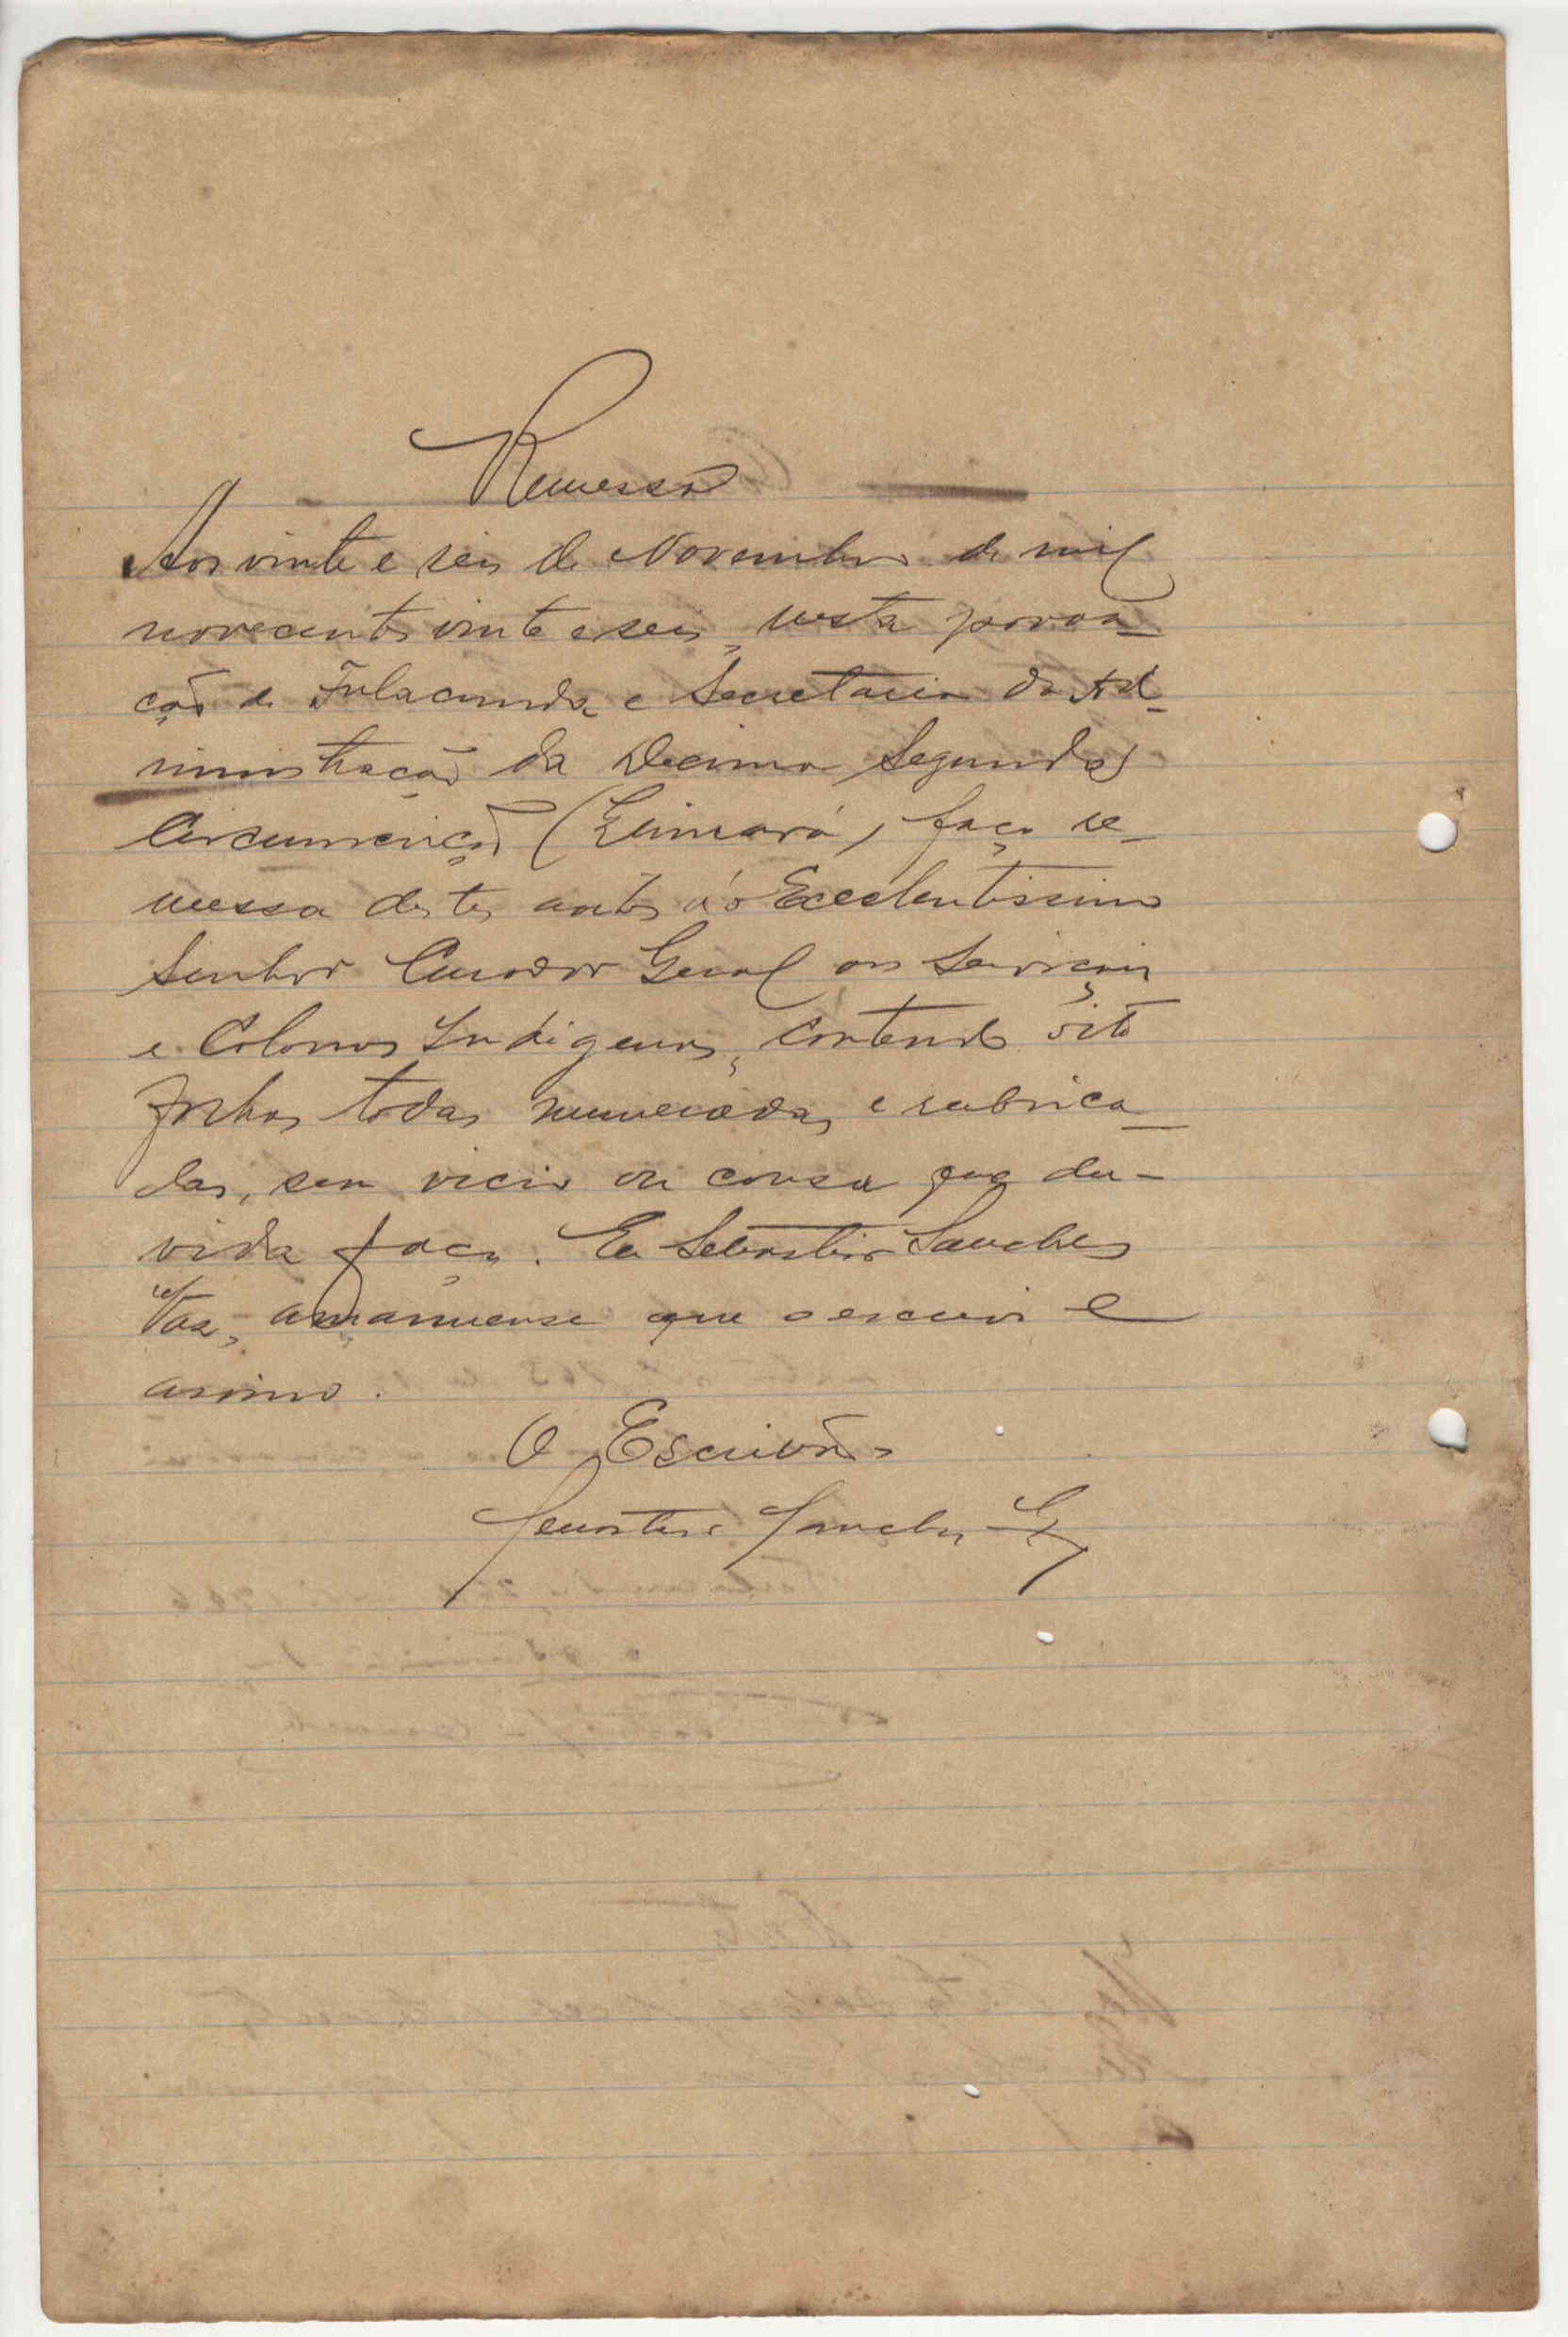 Remessa
Aos vinte e seis de Novembro de mil
novecentos vinte e seis, nesta povoa-
ção de Fulacunda e Secretaria da Ad-
ministração da Decima Segunda
Circunscrição (Quinará) faço re-
messa destes autos áo Excelentissimo
Senhor Curador Geral os Serviçais
e Colonos Indigenas, contendo oito
folhas todas numeradas e rubrica-
das, sem vicio ou cousa que du-
vida faça. Eu Sebastião Sanches
Vaz, amanuense que o escrevi e
assino.
O Escrivão
Sebastião Sanches Vaz